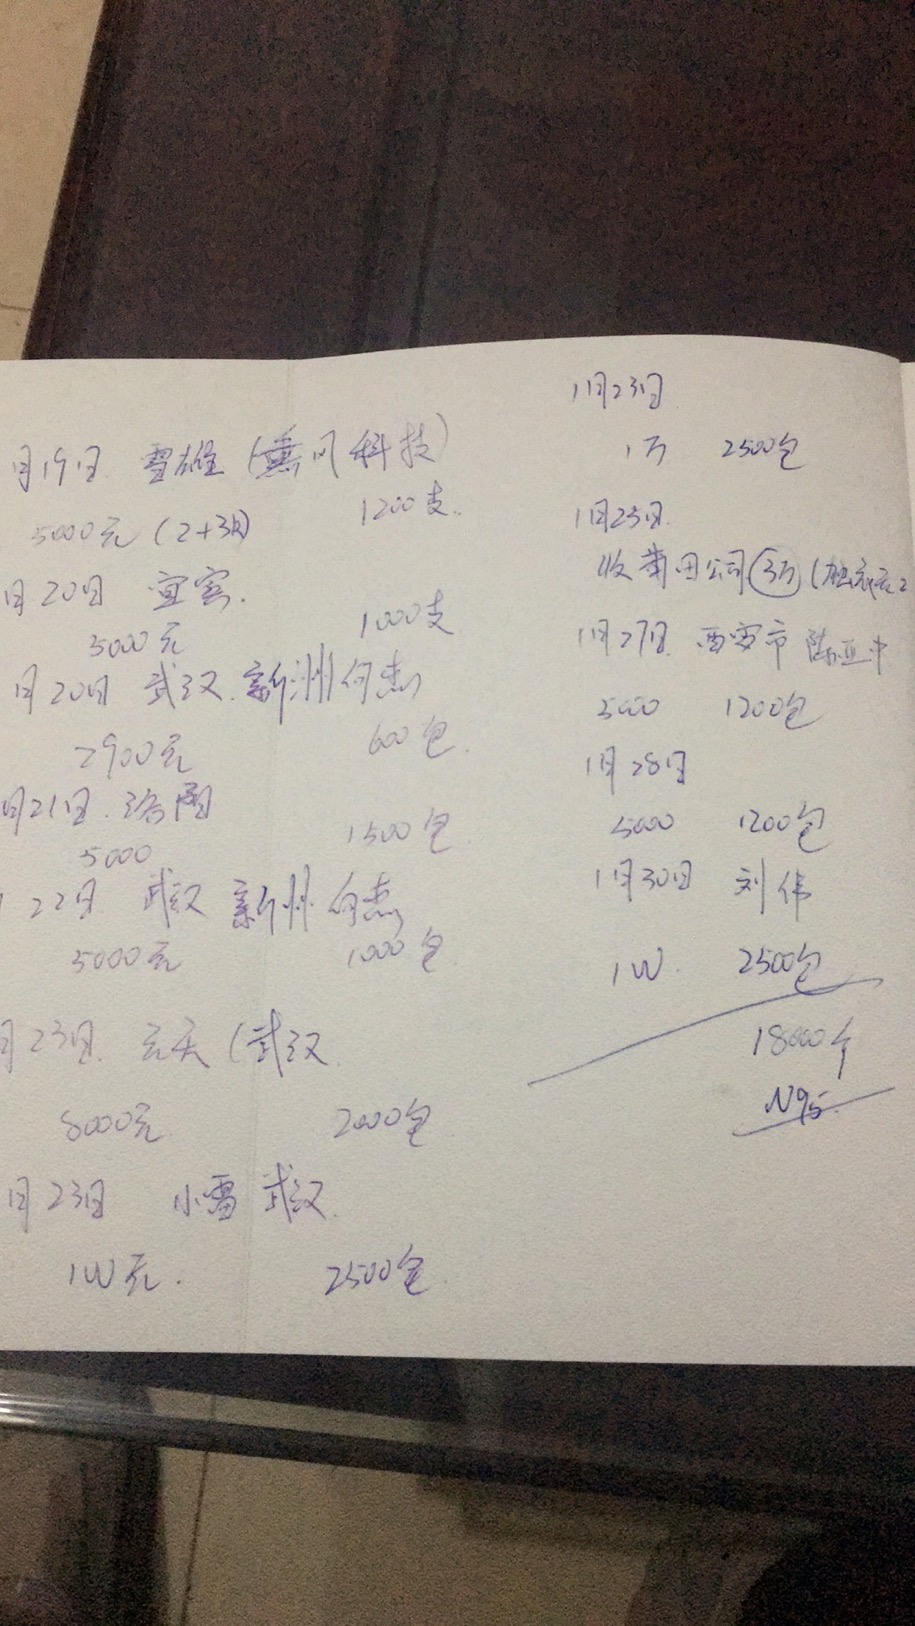 月19日 雷雄(熏风科技)
5000元(2+3k) 1200支
月20日 宜宾.
5000元 1000支
月20日 武汉.新洲何杰
2900元 600包
月21日. 洛阳
5000 1500包
1 22日 武汉 新洲 何杰
5000元 1000包
月23日. 云天(武汉
8000元 2000包
月23日 小雷 武汉.
1W元. 2500包
1月23日
1万 2500包
1月25日.
收莆田公司3万(
1月27日 西安市 陈亚中
5000 1200包
1月28日
5000 1200包
1月30日 刘伟
1W. 2500包
18000个
N95.